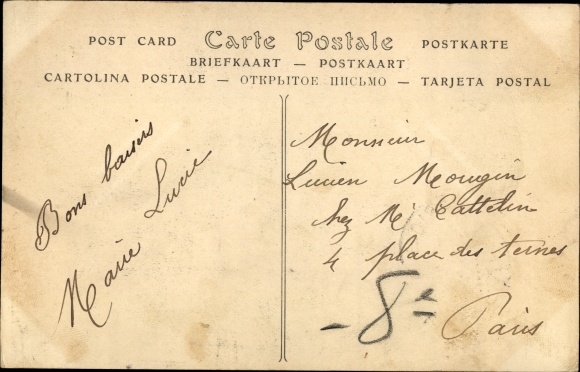 POST CARD Carte Postale POSTKARTE
BRIEFKAART — POSTKAART
CARTOLINA POSTALE — ОТКРЫТОЕ ПИСЬМО — TARJETA POSTAL
Bons baisers
Marie Lucie
Monsieur
Lucien Mougin
chez Mr Cattelin
4 place des ternes
- 8e
Paris